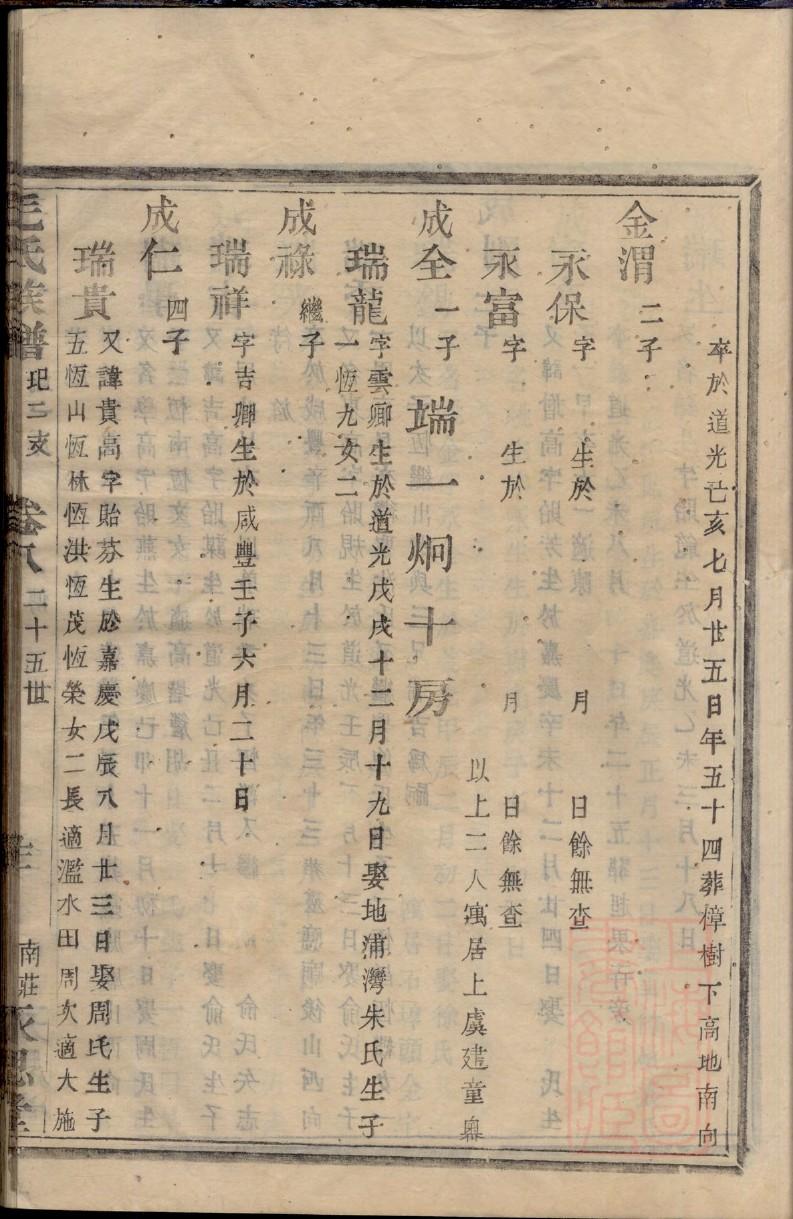 卒於道光亡亥七月廿五日年五十四葬樟樹下高地南向
金渭二子
永保字　生於　月　日餘無查
永富字　生於　月　日餘無查
以上二人寓居上虞建童嶴
成全一子　端一炯十房
瑞龍字雲卿生於道光戊戌十二月十九日娶地浦灣朱氏生子
一恆九女二
成祿繼子
瑞祥字吉卿生於咸豐壬子六月二十日
成仁四子
瑞貴又諱貴高字貽芬生於嘉慶戊辰八月廿三日娶周氏生子
五恆山恆林恆洪恆茂恆榮女二長適濫水田周次適大施
毛氏族譜　玘三支　卷八　二十五世　南莊永思堂